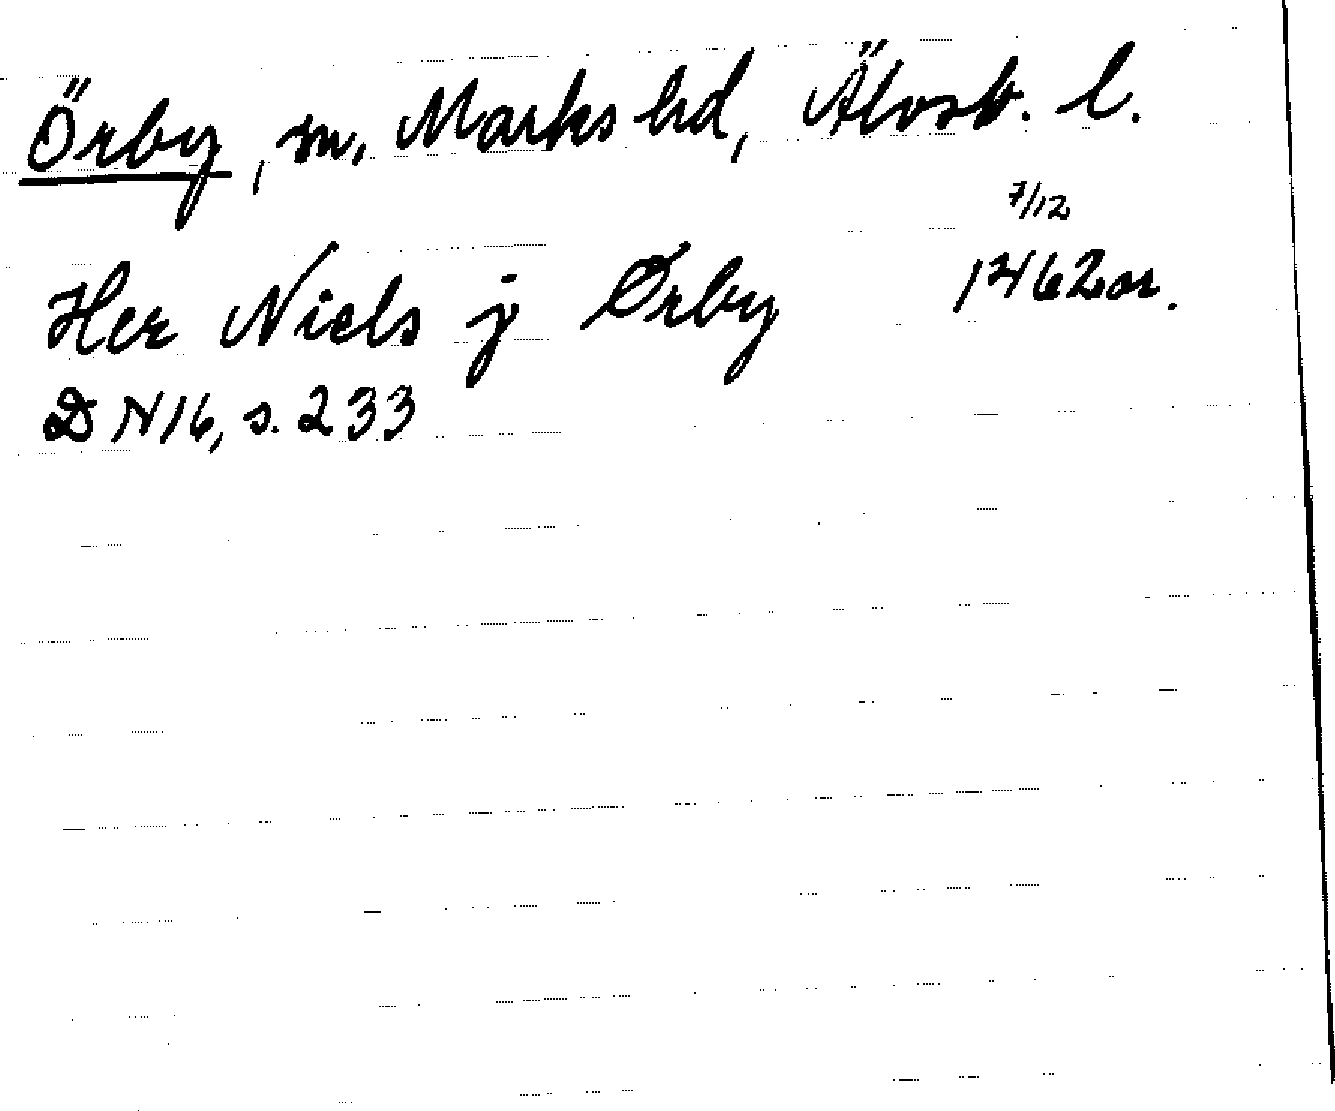 Örby, sn, Marks hd, Älvsb. l.
7/12
Her Niels j Ørby 1462 or.
DN 16, s. 233